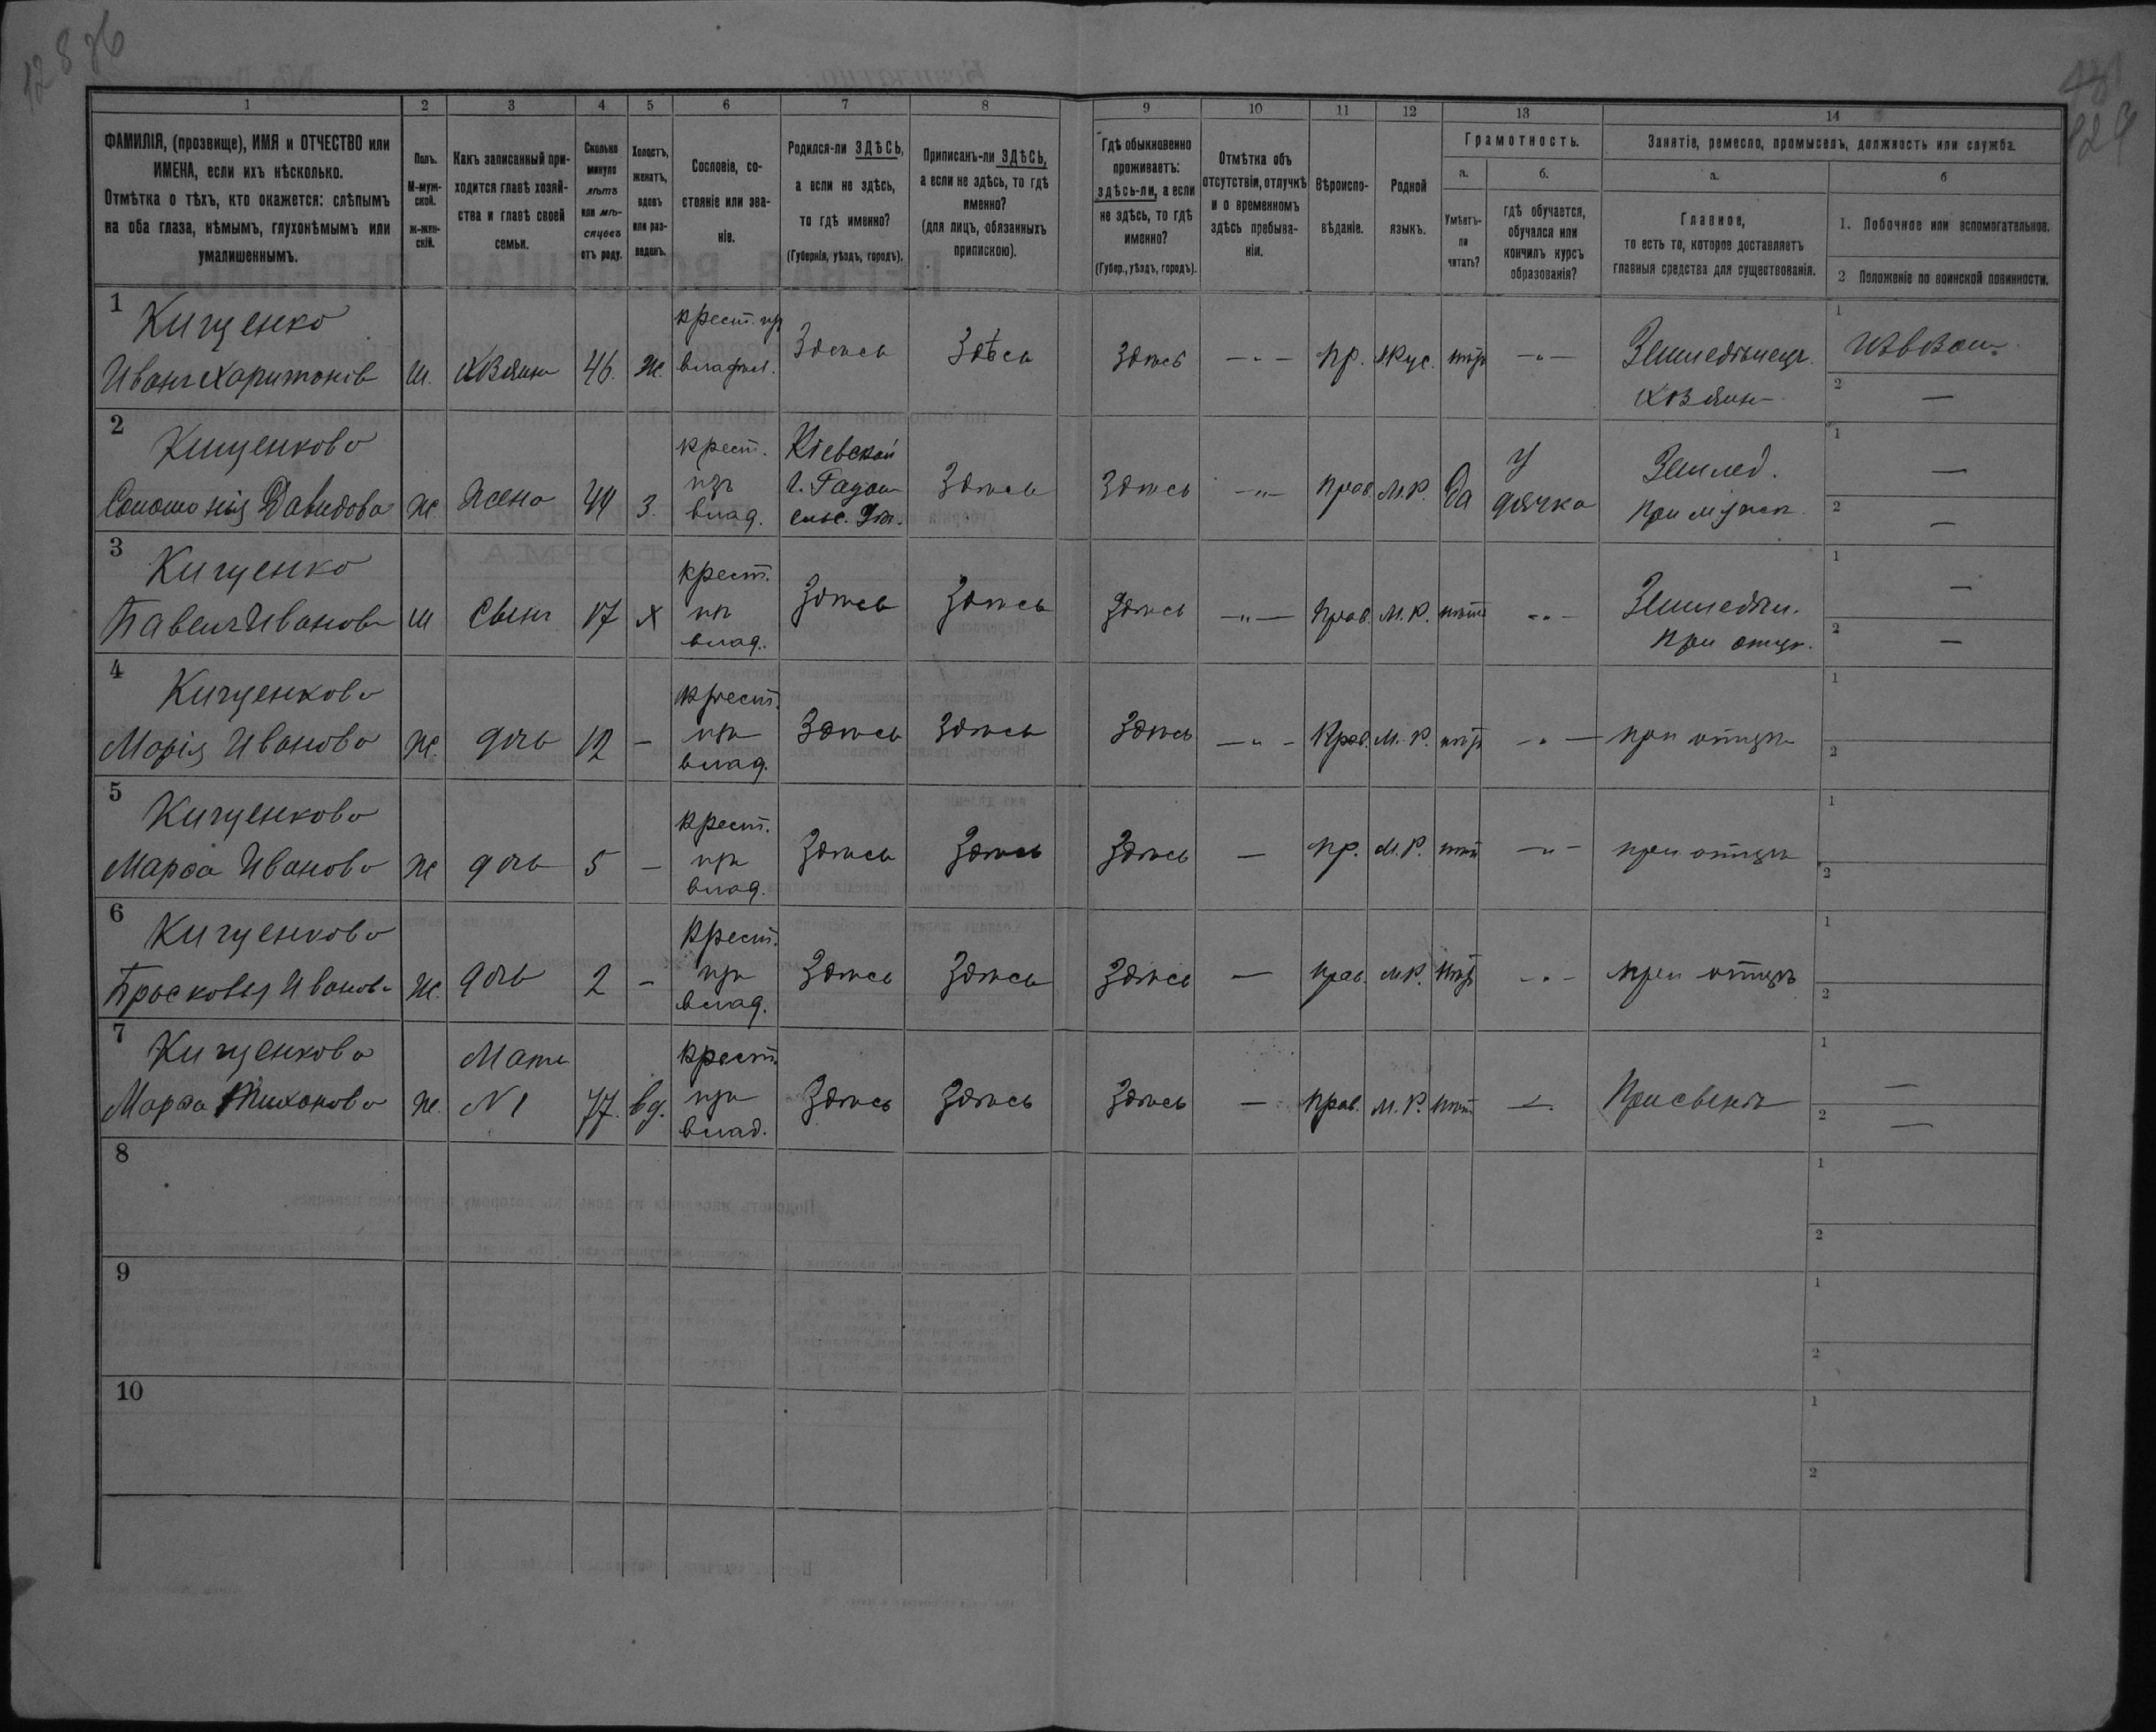 12876
129
1
2
3
4
5
6
7
8
9
10
11
12
13
14
ФАМИЛІЯ, (прозвище), ИМЯ и ОТЧЕСТВО или
ИМЕНА, если ихъ нѣсколько.
Отмѣтка о тѣхъ, кто окажется: слѣпымъ
на оба глаза, нѣмымъ, глухонѣмымъ или
умалишеннымъ.
Полъ.
М-муж-
ской.
Ж-жен-
скій.
Какъ записанный при-
ходится главѣ хозяй-
ства и главѣ своей
семьи.
Сколько
минуло
лѣтъ
или мѣ-
сяцевъ
отъ роду.
Холостъ,
женатъ,
вдовъ
или раз-
веденъ.
Сословіе, со-
стояніе или зва-
ніе.
Родился-ли ЗДѢСЬ,
а если не здѣсь,
то гдѣ именно?
(Губернія, уѣздъ, городъ).
Приписанъ-ли ЗДѢСЬ,
а если не здѣсь, то гдѣ
именно?
(для лицъ, обязанныхъ
припискою).
Гдѣ обыкновенно
проживаетъ:
здѣсь-ли, а если
не здѣсь, то гдѣ
именно?
(Губер., уѣздъ, городъ).
Отмѣтка объ
отсутствіи, отлучкѣ
и о временномъ
здѣсь пребыва-
ніи.
Вѣроиспо-
вѣданіе.
Родной
языкъ.
Грамотность.
а.
Умѣетъ-
ли
читать?
б.
гдѣ обучается,
обучался или
кончилъ курсъ
образованія?
Занятіе, ремесло, промыселъ, должность или служба.
а.
Главное,
то есть то, которое доставляетъ
главныя средства для существованія.
б
1. Побочное или вспомогательное.
2 Положеніе по воинской повинности.
1
Кищенко
Иванъ Харитоновъ
М.
хозяинъ
46.
Ж.
крест. изъ
владѣл.
Здѣсь
Здѣсь
Здѣсь
— „ —
пр.
М.Рус.
нѣтъ
— „ —
Земледѣлецъ.
хозяинъ
1
2 —
2
Кищенкова
Соломонія Давидова
Ж.
Жена
44
З.
крест.
изъ
влад.
Кіевской
Здѣсь
Здѣсь
— „ —
прав.
М.Р.
Да
У
дячка
Землед.
при мужѣ
1 —
2 —
3
Кищенко
Павелъ Ивановъ
М
Сынъ
17
Х
крест.
изъ
влад.
Здѣсь
Здѣсь
Здѣсь
— „ —
прав.
М.Р.
нѣтъ
— „ —
Земледѣл.
при отцѣ.
1 —
2 —
4
Кищенкова
Марія Иванова
Ж.
дочь
12
—
крест.
изъ
влад.
Здѣсь
Здѣсь
Здѣсь
— „ —
Прав.
М.Р.
нѣтъ
— „ —
при отцѣ
1
2
5
Кищенкова
Марѳа Иванова
Ж
дочь
5
—
крест.
изъ
влад.
Здѣсь
Здѣсь
Здѣсь
—
пр.
М.Р.
нѣтъ
— „ —
при отцѣ
1
2
6
Кищенкова
Прасковья Иванова
Ж.
дочь
2
—
крест.
изъ
влад.
Здѣсь
Здѣсь
Здѣсь
—
прав.
М.Р.
нѣтъ
— „ —
при отцѣ
1
2
7
Кищенкова
Марѳа Тихонова
Ж.
Мать
№1
77.
вд.
крест.
изъ
влад.
Здѣсь
Здѣсь
Здѣсь
—
прав.
М.Р.
нѣтъ
—
При сынѣ
1 —
2 —
8
1
2
9
1
2
10
1
2